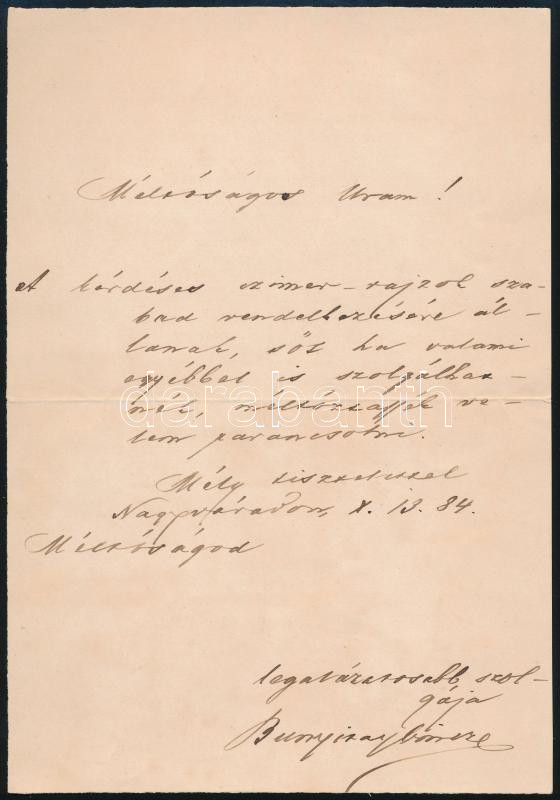 Méltóságos Uram!
A kérdéses czimer-rajzok sza-
bad rendelkezésére ál-
lanak, sőt ha valami
egyébbel is szolgálhat-
nék, méltóztassék ve-
lem parancsolni.
Mély tisztelettel
Nagyváradon, X. 13. 84.
Méltóságod
legalázatosabb szol-
gája
Bunyitay Vincze
darabanth